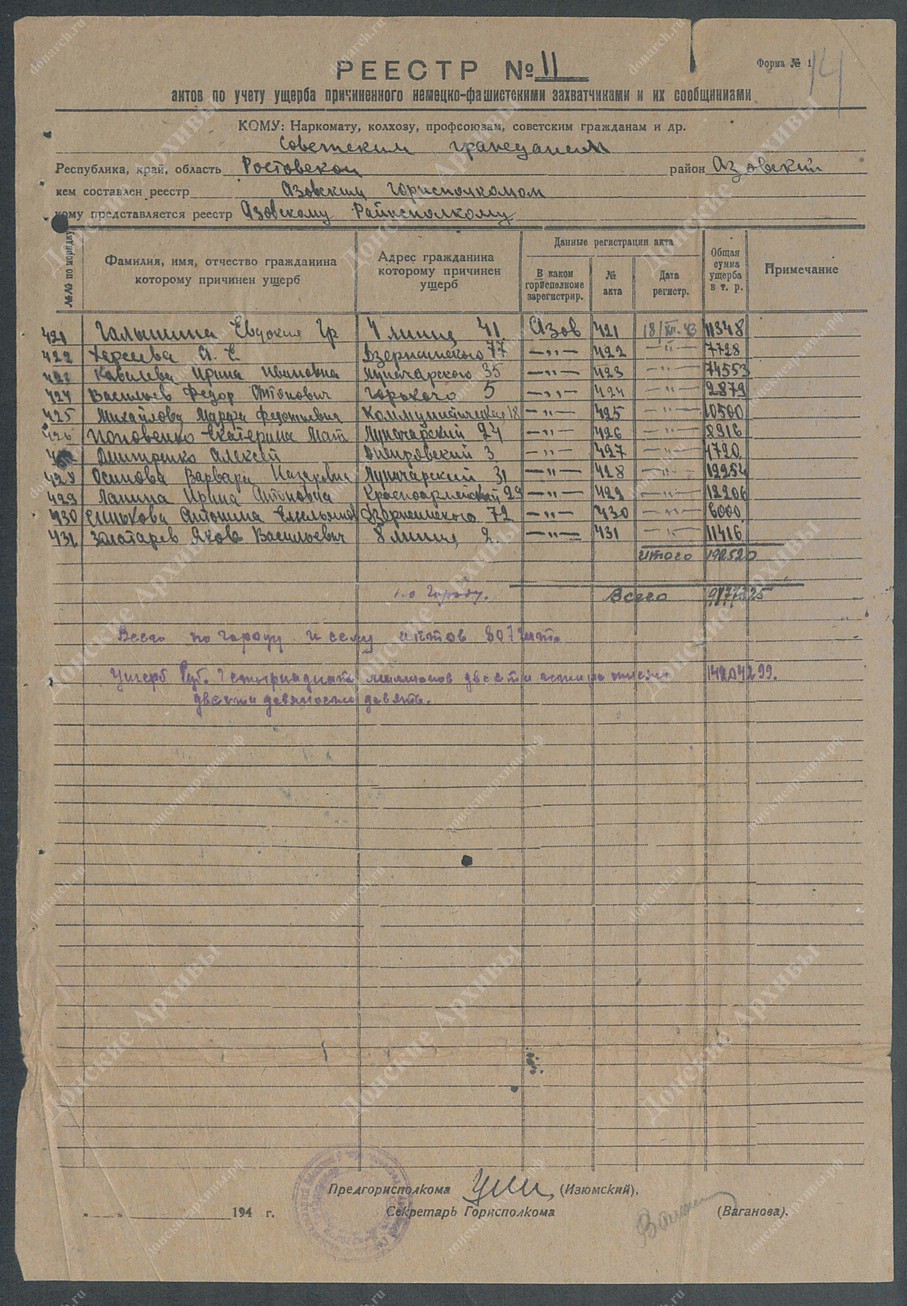 РЕЕСТР № 11
Форма № 1
14
актов по учету ущерба причиненного немецко-фашистскими захватчиками и их сообщниками
КОМУ: Наркомату, колхозу, профсоюзам, советским гражданам и др.
Советским гражданам
Республика, край, область Ростовской район Азовский
кем составлен реестр Азовским Горисполкомом
кому представляется реестр Азовскому Райисполкому
№№ по порядку Фамилия, имя, отчество гражданина которому причинен ущерб Адрес гражданина которому причинен ущерб Данные регистрации акта Общая сумма ущерба в т. р. Примечание
В каком горисполкоме зарегистрир. № акта Дата регистр.
421 Галынина Евдокия Гр 4 линия 41 Азов 421 18/XII-43 11348
422 А. С Дзержинского 77 —"— 422 —"— 7728
423 Ковалева Ирина Ивановна Луначарского 35 —"— 423 —"— 74553
424 Васильев Федор Антонович Горького 5 —"— 424 —"— 2879
425 Михайлова Марфа Федотьевна Коммунистическая 18 —"— 425 —"— 10500
426 Поповенко Екатерина Мат Луначарский 24 —"— 426 —"— 8916
Дмитренко Алексей 3 —"— 427 —"— 4720
428 Осипова Варвара Луначарский 31 —"— 428 —"—
429 Лапина Ирина Антоновна Красноармейский 29 —"— 429 —"— 12206
430 Антонина Емельяновна Дзержинского 72 —"— 430 —"— 6000
431 Золотарев Яков Васильевич 8 линия 2. —"— 431 —"— 11416
Итого
по городу. Всего
Всего по городу и селу актов 8073шт.
Ущерб Руб. Четырнадцать миллионов двести четыре тысячи 14204299.
двести девяносто девять.
Предгорисполкома (Изюмский).
194 г. Секретарь Горисполкома (Ваганова).
Донские Архивы
donarch.ru
донскиеархивы.рф